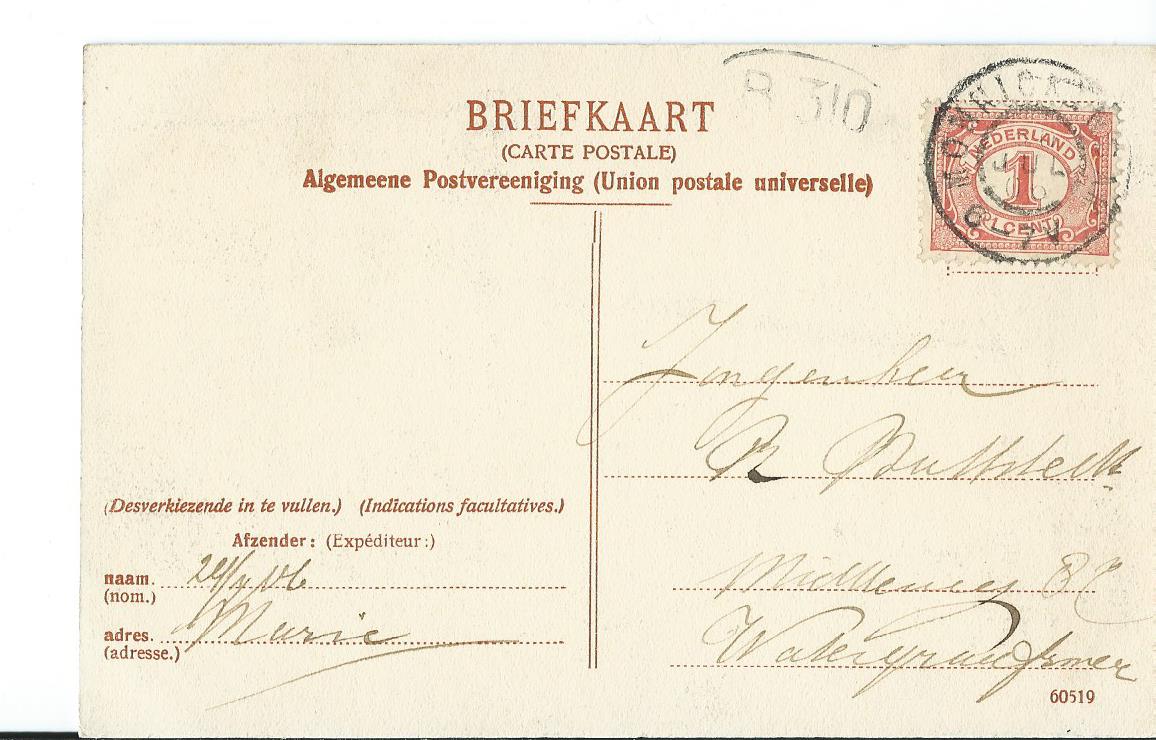 BRIEFKAART
(CARTE POSTALE)
Algemeene Postvereeniging (Union postale universelle)
B 310
NEDERLAND
1
CENT
JUL
06
6-7V
Jongenheer
R
Middenweg
Watergraafsmeer
(Desverkiezende in te vullen.) (Indications facultatives.)
Afzender: (Expéditeur:)
naam.
(nom.)
adres. Marie
(adresse.)
60519